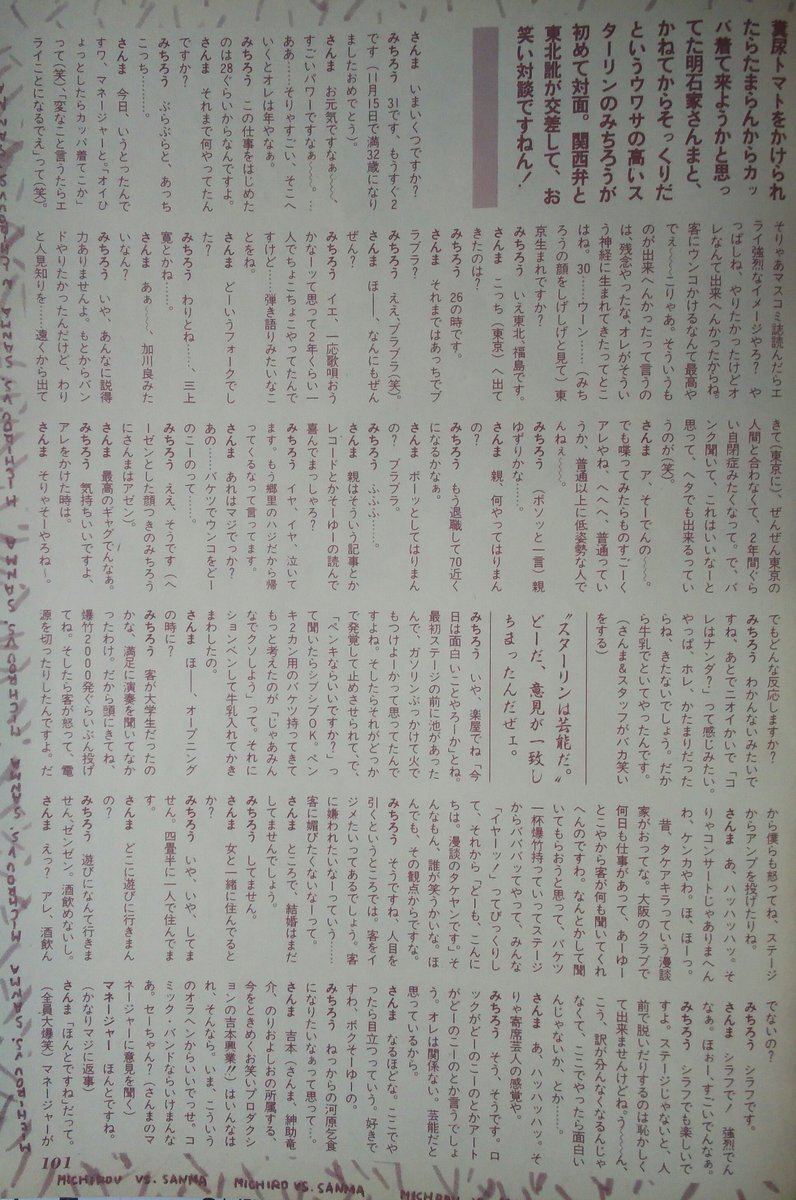 糞尿トマトをかけられ
たらたまらんからカッ
パ着て来ようかと思っ
てた明石家さんまと、
かねてからそっくりだ
というウワサの高いス
ターリンのみちろうが
初めて対面。関西弁と
東北訛が交差して、お
笑い対談ですねん！
さんま いまいくつですか？
みちろう 31です、もうすぐ2
です（11月15日で満32歳になり
ましたおめでとう）。
さんま お元気ですなぁ〜〜、
すごいパワーですなぁ〜〜。…
ああ……そりゃすごい、そこへ
いくとオレは年やなぁ。
みちろう この仕事をはじめた
のは28ぐらいからなんですよ。
さんま それまで何やってたん
ですか？
みちろう ぶらぶらと、あっち
こっち………。
さんま 今日、いうとったんで
すワ、マネージャーと。「オイひ
ょっとしたらカッパ着てこか」
って（笑）、「変なこと言うたらエ
ライことになるでえ」って（笑）。
そりゃあマスコミ誌読んだらエ
ライ強烈なイメージやろ？ や
っぱしね、やりたかったけどオ
レなんて出来へんかったからね。
客にウンコかけるなんて最高や
でえ〜〜こりゃあ。そういうも
のが出来へんかったって言うの
は、残念やったな、オレがそうい
う神経に生まれてきたってとこ
はね。30……ウーン……（みち
ろうの顔をしげしげと見て）東
京生まれですか？
みちろう いえ東北、福島です。
さんま こっち（東京）へ出て
きたのは？
みちろう 26の時です。
さんま それまではあっちでブ
ラブラ？
みちろう ええ、ブラブラ（笑）。
さんま ほ――、なんにもぜん
ぜん？
みちろう イエ、一応歌唄おう
かなーッて思って2年くらい一
人でちょこちょこやってたんで
すけど……弾き語りみたいなこ
とをね。
さんま どーいうフォークでし
た？
みちろう わりとね……、三上
寛とかね……。
さんま あぁ〜〜、加川良みた
いなん？
みちろう いや、あんなに説得
力ありませんよ。もとからバン
ドやりたかったんだけど、わり
と人見知りを……遠くから出て
きて（東京に）、ぜんぜん東京の
人間と合わなくて、2年間ぐら
い自閉症みたくなって。で、パ
ンク聞いて、これはいいなーと
思って、ヘタでも出来るってい
うのが（笑）。
さんま ア、そーでんの〜〜。
でも喋ってみたらものすごーく
アレやね、へへへ、普通ってい
うか、普通以上に低姿勢な人で
んねぇ〜〜。
みちろう （ボソッと一言）親
ゆずりかな……。
さんま 親、何やってはりまん
の？
みちろう もう退職して70近く
になるかなぁ。
さんま ボーッとしてはりまん
の？ ブラブラ。
みちろう ふふふ……。
さんま 親はそういう記事とか
レコードとかそーゆーの読んで
喜んでまっしゃろ？
みちろう イヤ、イヤ、泣いて
ます。もう郷里のハジだから帰
ってくるなって言ってます。
さんま あれはマジでっか？
あの……バケツでウンコをどー
のこーのって……。
みちろう ええ、そうです（へ
ーゼンとした顔つきのみちろう
にさんまはアゼン）。
さんま 最高のギャグでんなぁ。
みちろう 気持ちいいですよ、
アレをかけた時は。
さんま そりゃそーやろね〜。
でもどんな反応しますか？
みちろう わかんないみたいで
すね、あとでニオイかいで「コ
レはナンダ？」って感じみたい。
やっぱ、ホレ、かたまりだった
らね、きたないでしょう。だか
ら牛乳でといてやったんです。
（さんま＆スタッフがバカ笑い
をする）
〝スターリンは芸能だ。〟
どーだ、意見が一致し
ちまったんだぜエ。
みちろう いや、楽屋でね「今
日は面白いことやろーか」とね。
最初ステージの前に池があった
んで、ガソリンぶっかけて火で
もつけよーかって思ってたんで
すよね。そしたらそれがどっか
で発覚して止めさせられて、で、
「ペンキならいいですか？」っ
て聞いたらシブシブOK。ペン
キ2カン用のバケツ持ってきて
もっと考えたのが、「じゃあみん
なでクソしよう」って。それに
ションベンして牛乳入れてかき
まわしたの。
さんま ほ――、オープニング
の時に？
みちろう 客が大学生だったの
かな、満足に演奏を聞いてなか
ったわけ。だから頭にきてね、
爆竹2000発ぐらいぶん投げ
てね。そしたら客が怒って、電
源を切ったりしたんですよ。だ
から僕らも怒ってね、ステージ
からアンプを投げたりね。
さんま あ、ハッハッハッ。そ
りゃコンサートじゃありまへん
わ、ケンカやわ。ほ、ほーっ。
昔、タケアキラっていう漫談
家がおってな。大阪のクラブで
何日も仕事があって、あーゆー
とこやから客が何も聞いてくれ
へんのですわ。なんとかして聞
いてもらおうと思って、バケツ
一杯爆竹持っていってステージ
からババババッてやって、みんな
「イヤーッ！」ってびっくりし
て、それから「どーも、こんに
ちは。漫談のタケヤンです」そ
んなもん、誰が笑うかいな。ほ
んでも、その観点からですな。
みちろう そうですね、人目を
引くというところでは。客をイ
ジメたいってあるでしょう。客
に嫌われたいなーっていう……
客に媚びたくないなーって。
さんま ところで、結婚はまだ
してませんでしょう。
みちろう してません。
さんま 女と一緒に住んでると
か？
みちろう いや、いや、してま
せん。四畳半に一人で住んでま
す。
さんま どこに遊びに行きまん
の？
みちろう 遊びになんて行きま
せん、ゼンゼン。酒飲めないし。
さんま えっ？ アレ、酒飲ん
でないの？
みちろう シラフです。
さんま シラフで！ 強烈でん
なぁ。ほぉー、すごいでんなぁ。
みちろう シラフでも楽しいで
すよ。ステージじゃないと、人
前で脱いだりするのは恥かしく
て出来ませんけどね。う〜〜ん、
こう、訳が分んなくなるんじゃ
なくて、ここでやったら面白い
んじゃないか、とか……。
さんま あ、ハッハッハッ。そ
りゃ寄席芸人の感覚や。
みちろう そう、そうです。ロ
ックがどーのこーのとかアート
がどーのこーのとか言うでしょ
う。オレは関係ない。芸能だと
思っているから。
さんま なるほどな。ここでや
ったら目立つっていう。好きで
すわ、ボクそーゆーの。
みちろう ねっからの河原乞食
になりたいなぁって思って…。
さんま 吉本（さんま、紳助竜
介、のりおよしおの所属する、
今をときめくお笑いプロダクシ
ョンの吉本興業!!）はいんなは
れ、そんなら。いま、こういう
のオラヘンからいいでっせ。コ
ミック・バンドならいけまんな
あ。セーちゃん？（さんまのマ
ネージャーに意見を聞く）
マネージャー ほんとですね。
（かなりマジに返事）
さんま 「ほんとですね」だって。
（全員大爆笑）マネージャーが
101
MICHIROU VS. SANMA
MICHIRO VS. SANMA